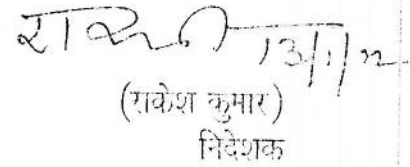 13/1/22
(राकेश कुमार)
निदेशक